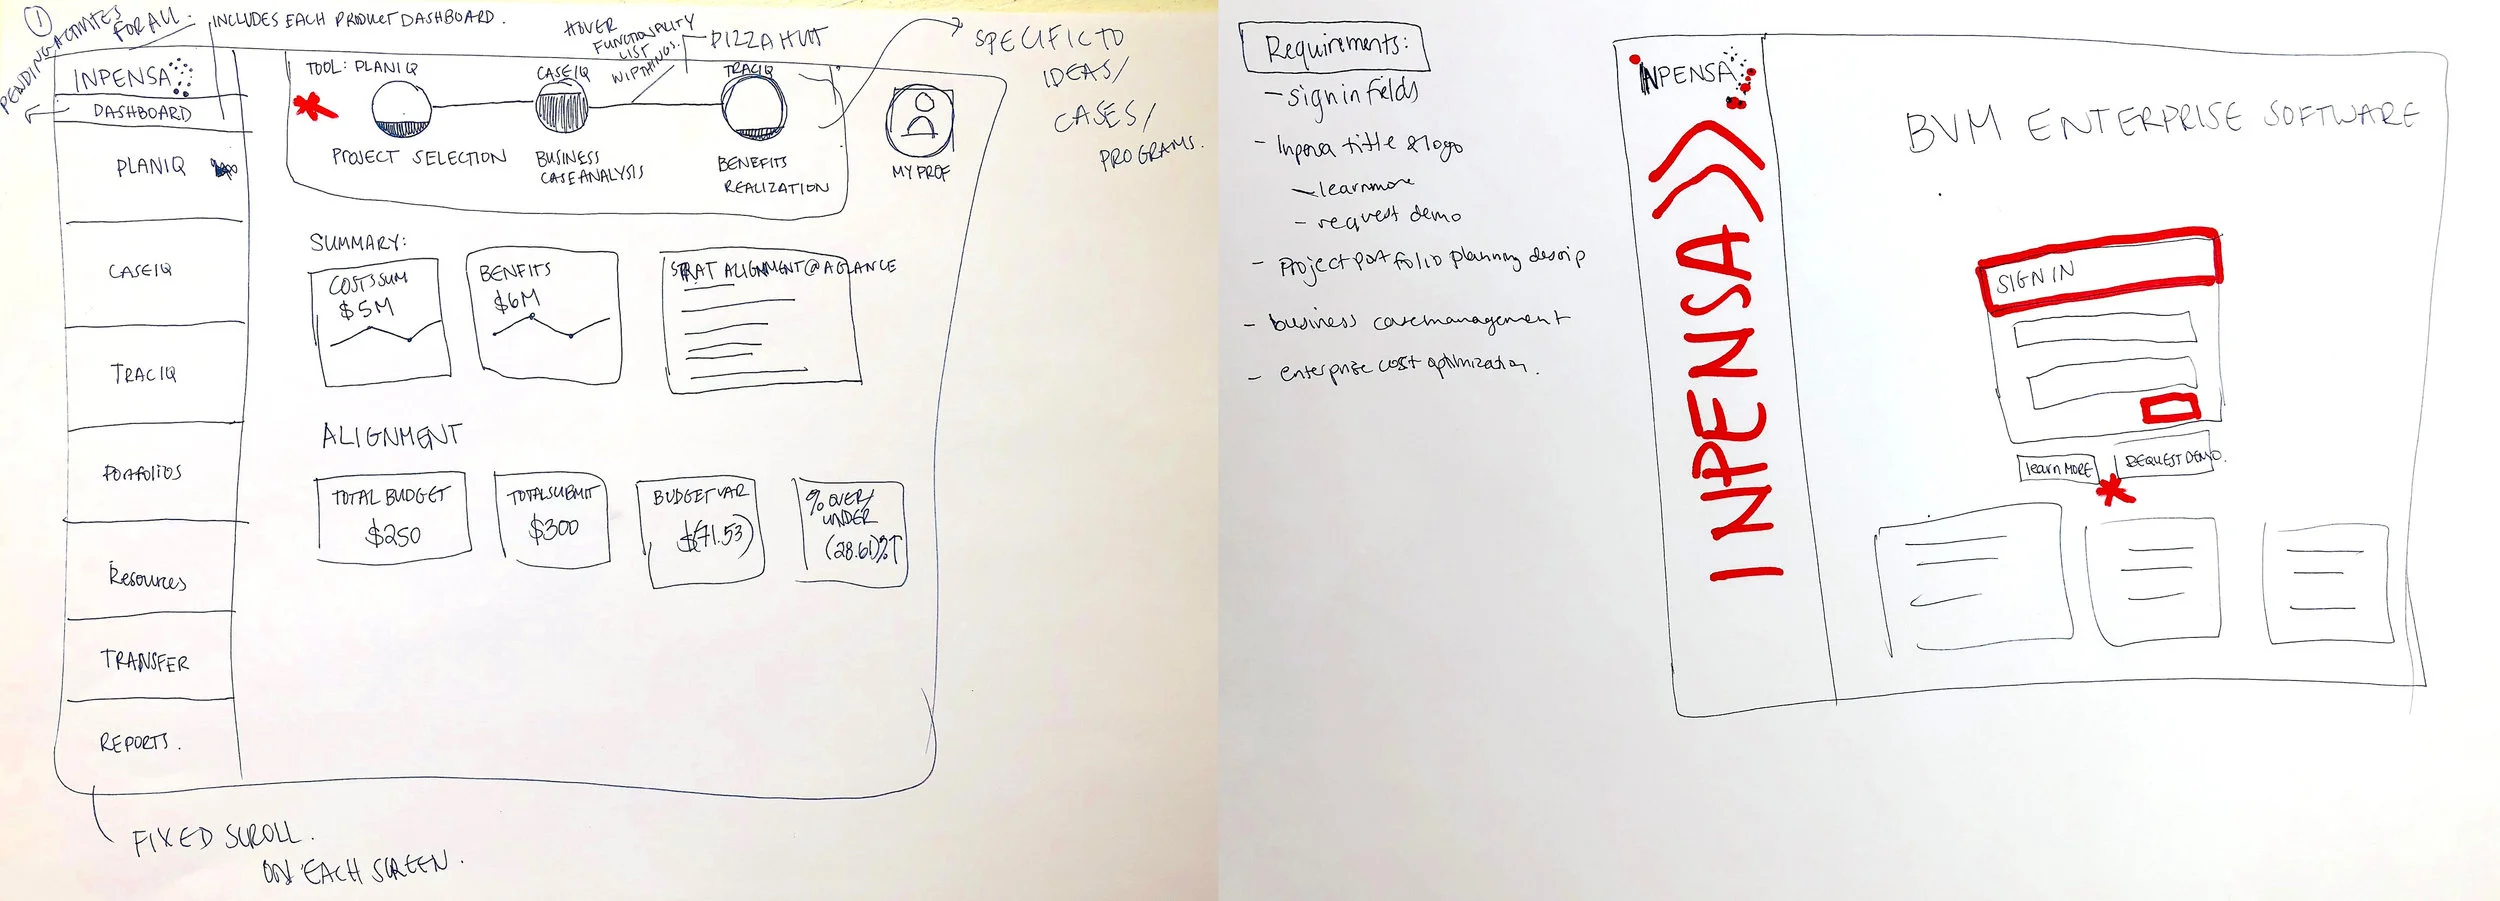 1
PENDING ACTIVITES
FOR ALL.
INCLUDES EACH PRODUCT DASHBOARD.
HOVER
FUNCTIONALITY
LIST
W/PTHINGS.
PIZZA HUT
SPECIFIC TO
IDEAS/
CASES/
PROGRAMS.
INPENSA
DASHBOARD
PLANIQ
CASEIQ
TRACIQ
PORTFOLIOS
Resources
TRANSFER
REPORTS.
TOOL: PLANIQ
CASEIQ
TRACIQ
PROJECT SELECTION
BUSINESS
CASE ANALYSIS
BENEFITS
REALIZATION
MY PROF
SUMMARY:
COSTSSUM
$5M
BENFITS
$6M
STRAT ALIGNMENT@AGLANCE
ALIGNMENT
TOTAL BUDGET
$250
TOTALSUBMIT
$300
BUDGET VAR
$(71.53)
% OVER/
UNDER
(28.61)%↑
FIXED SCROLL.
ON EACH SCREEN.
Requirements:
- sign in fields
- Inpensa title & logo
- learn more
- request demo
- project portfolio planning descrip
- business case management
- enterprise cost optimization.
INPENSA
INPENSA
BVM ENTERPRISE SOFTWARE
SIGN IN
learn MORE
REQUEST DEMO.